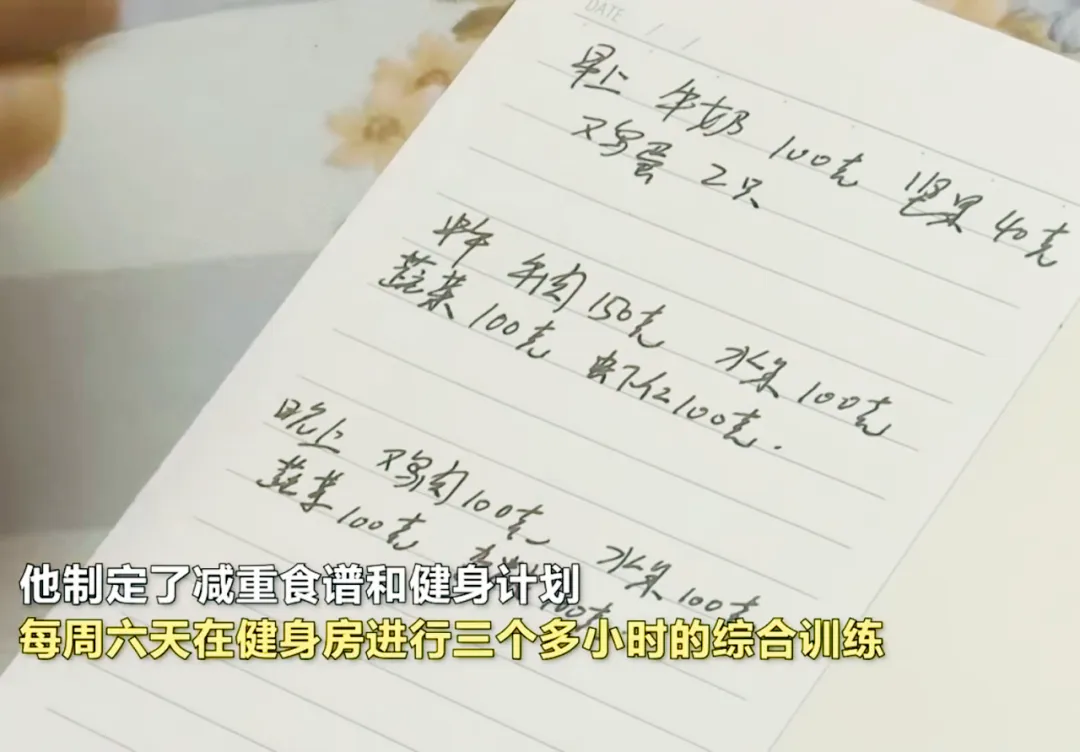 DATE / /
早上 牛奶 100克 坚果 40克
鸡蛋 2只
中午 牛肉 150克 水果 100克
蔬菜 100克 虾仁 100克.
晚上 鸡肉 100克 水果 100克
蔬菜 100克
他制定了减重食谱和健身计划
每周六天在健身房进行三个多小时的综合训练